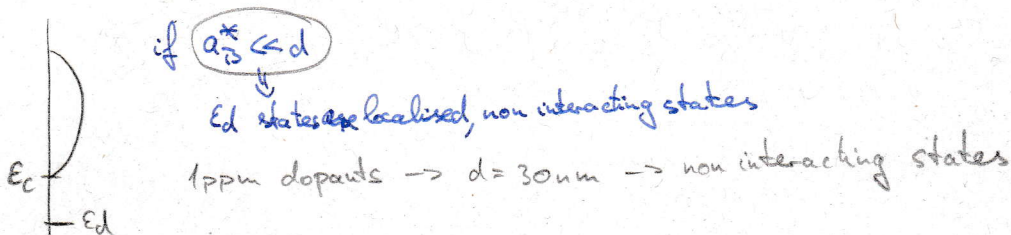 if a*_B << d
Ed states are localised, non interacting states
1ppm dopants -> d = 30nm -> non interacting states
Ec
Ed